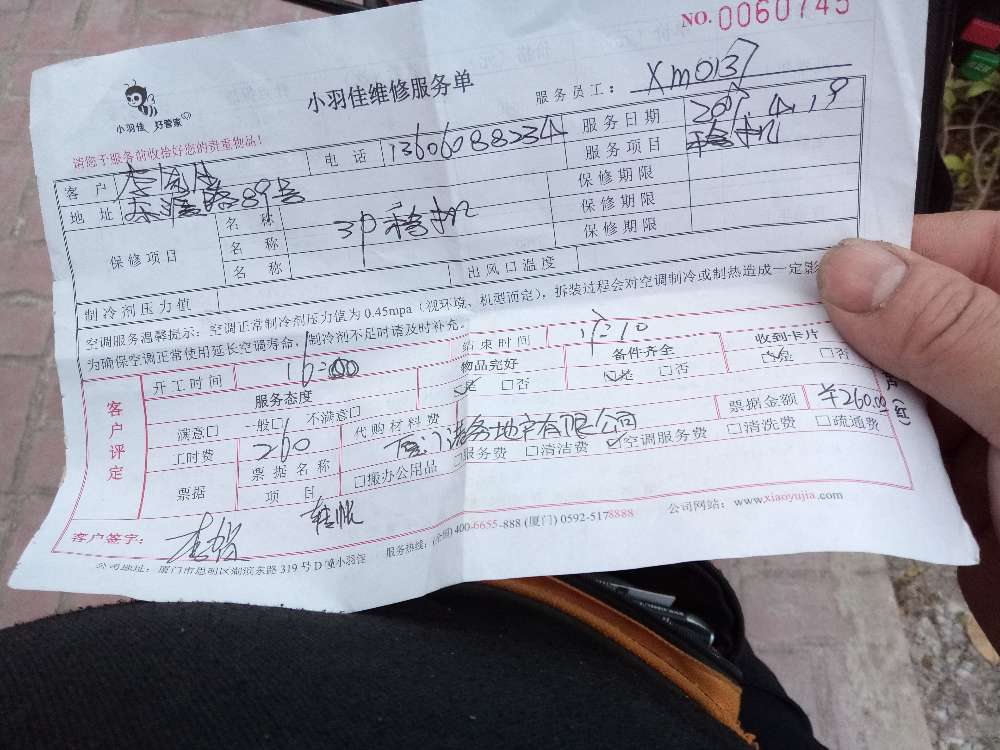 NO. 0060745
小羽佳 好管家
小羽佳维修服务单
服务员工： XM0137
请您于服务前收拾好您的贵重物品！
客户 电话 13606088234 服务日期 4.19
地址 路89号 服务项目 移机
保修项目 名称 3P移机 保修期限
名称 保修期限
名称 保修期限
制冷剂压力值 出风口温度
空调服务温馨提示：空调正常制冷剂压力值为0.45mpa（视环境、机型而定），拆装过程会对空调制冷或制热造成一定影
为确保空调正常使用延长空调寿命，制冷剂不足时请及时补充。
客户评定 开工时间 16:00 结束时间 17:10
服务态度 物品完好 备件齐全 收到卡片
满意□ 一般□ 不满意□ ☑是 □否 ☑是 □否 ☑是 □否
工时费 260 代购材料费
票据 票据名称 厦门 地产有限公司 票据金额 ¥260.00
项目 □搬办公用品 □服务费 □清洁费 ☑空调服务费 □清洗费 □疏通费
客户签字： 转帐
公司地址：厦门市思明区湖滨东路319号D 小羽佳 服务热线：(全国) 400-6655-888 (厦门) 0592-5178888 公司网站：www.xiaoyujia.com